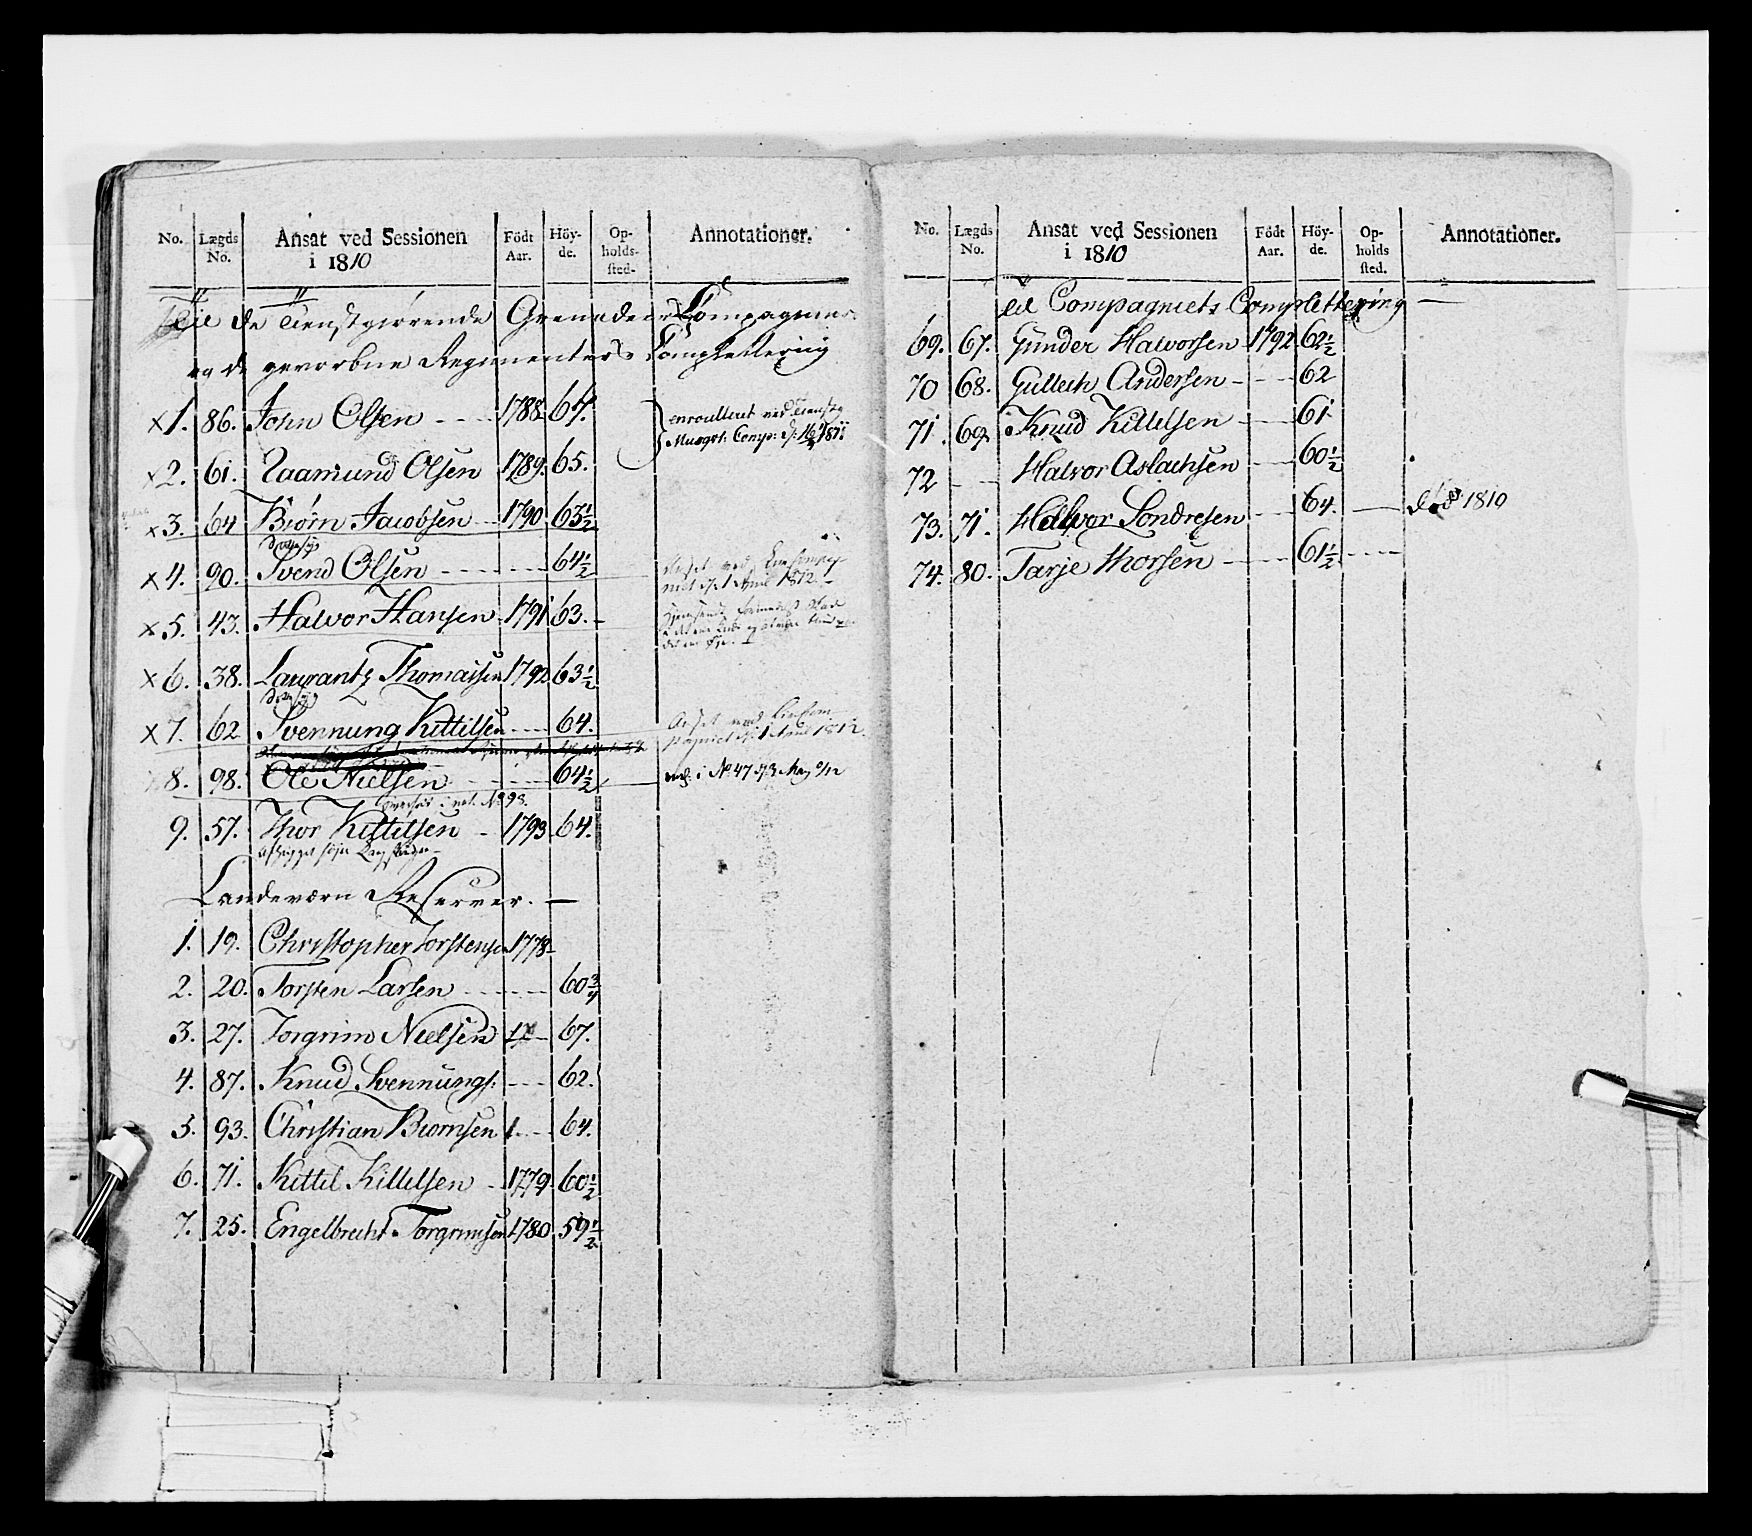 No. Lægds No. Ansat ved Sessionen i 1810 Födt Aar. Höy-de. Op-holds-sted. Annotationer.
Til de Tienstgiørende Grenadeer Compagnier
og de gevorbne Regimenters Completering
x1. 86. John Olsen - - - 1788 64. enroulleret ved Tienstg
Musqt: Comp:
x2. 61. Aamund Olsen 1789. 65.
x3. 64 Biørn Jacobsen 1790 63 1/2
x4. 90. Svend Olsen - - - 64 1/2 Ansat ved
1 April 1812. -
x5. 43. Halvor Hansen 1791 63. -
x6. 38. Laurantz Thomassen 1792 63 1/2
x7. 62 Svennung Kittilsen - - - 64. Ansat ved
1 April 1812.
8. 98. Ole Nielsen - - - 64 1/2 i No 47
No 98.
9. 57. Thor Kittilsen - 1793 64.
Landeværn Reserver. -
1. 19. Christopher Torstensen 1778 -
2. 20. Torsten Larsen - - - 60 3/4
3. 27. Torgrim Nielsen - 67.
4. 87. Knud Svennungs: - - - 62.
5. 93. Christian Biørnsen - - - 64.
6. 71. Kittil Kittilsen - 1779 60 1/2
7. 25. Engelbrecht Torgrimsen 1780 59 1/2
No. Lægds No. Ansat ved Sessionen i 1810 Födt Aar. Höy-de. Op-holds sted. Annotationer.
til Compagniets Completering -
69. 67. Gunder Halvorsen 1792 62 1/2
70 68. Gullech Andersen - - - 62
71. 69. Knud Kittilsen - - - 61
72 - - Halvor Aslachsen - - - 60 1/2
73. 71. Halvor Sondresen - - - 64. - død 1810
74. 80. Tarje Thorsen - - - 61 1/2 - - -